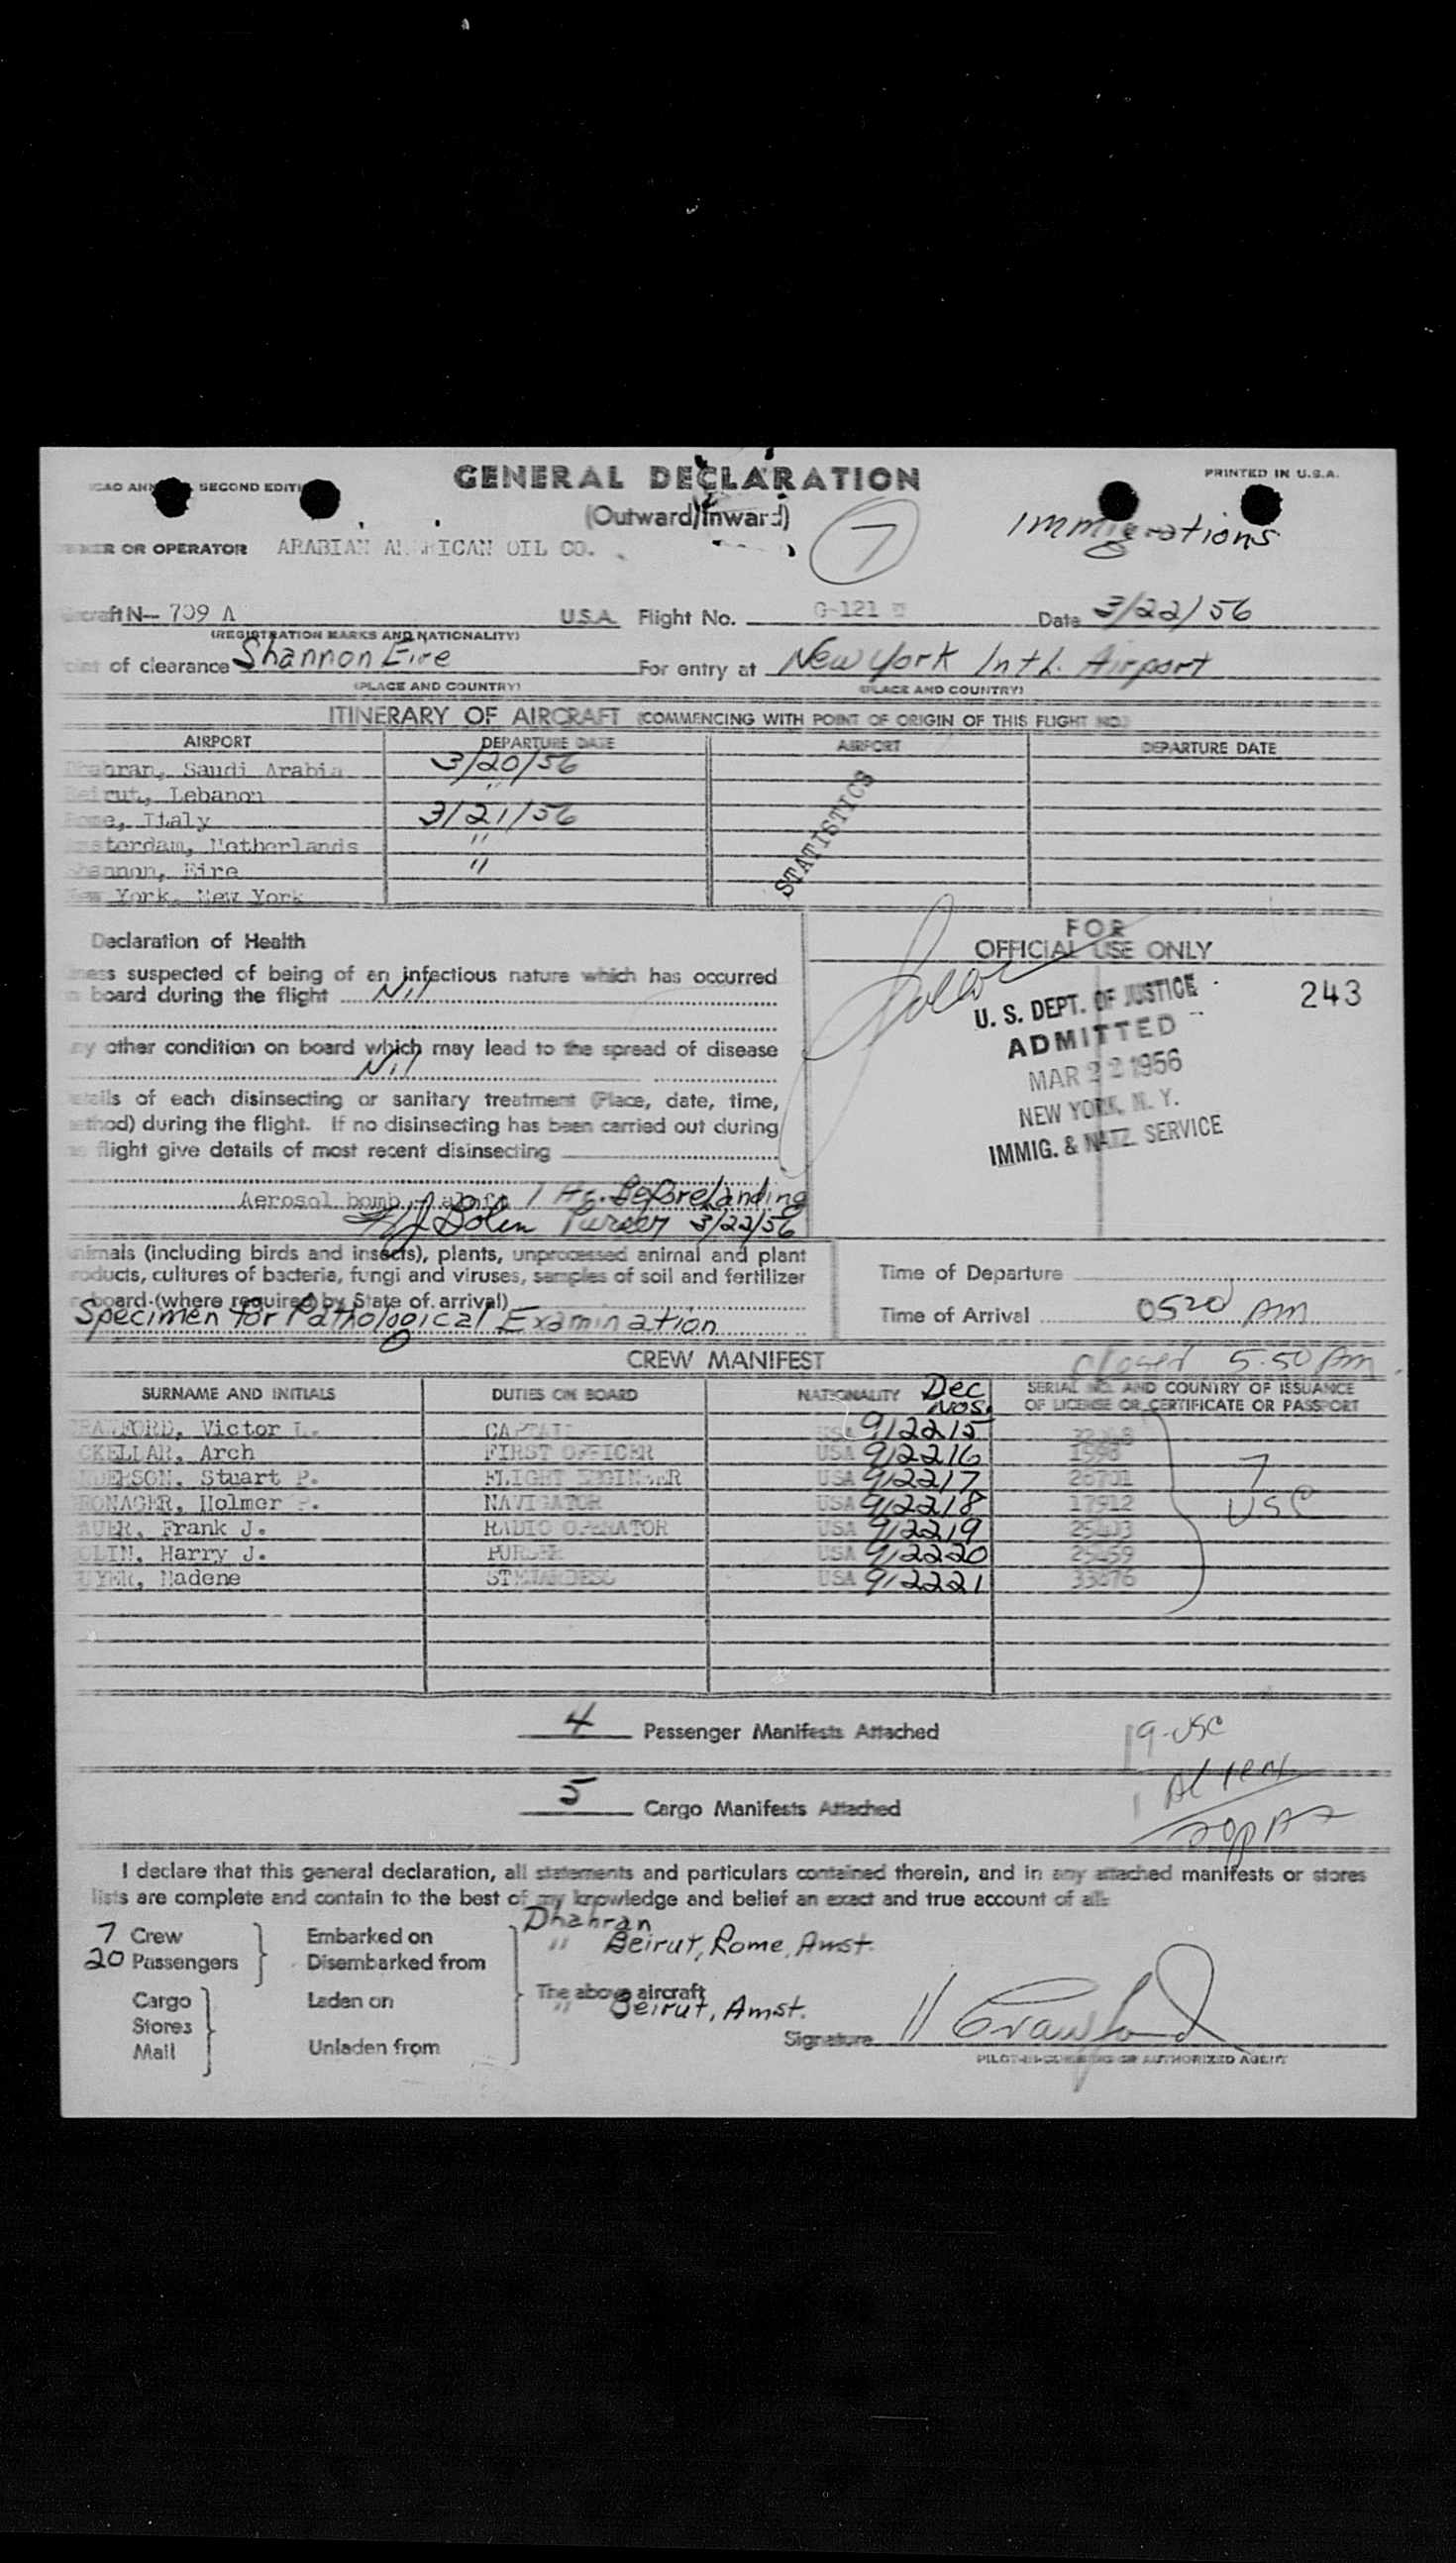 GENERAL DECLARATION
PRINTED IN U.S.A.
SECOND
(Outward/Inward)
7
Immigrations
OR OPERATOR ARABIAN AMERICAN OIL CO.
N- 709 A U.S.A. Flight No. Date 3/22/56
(REGISTRATION MARKS AND NATIONALITY)
of clearance Shannon Eire For entry at New York Intl. Airport
(PLACE AND COUNTRY) (PLACE AND COUNTRY)
ITINERARY OF AIRCRAFT (COMMENCING WITH POINT OF ORIGIN OF THIS FLIGHT NO.)
AIRPORT DEPARTURE DATE AIRPORT DEPARTURE DATE
Saudi Arabia 3/20/56
Lebanon "
Italy 3/21/56
Netherlands "
Eire "
York, New York
STATISTICS
Declaration of Health
suspected of being of an infectious nature which has occurred
board during the flight Nil
other condition on board which may lead to the spread of disease
Nil
of each disinsecting or sanitary treatment (Place, date, time,
during the flight. If no disinsecting has been carried out during
flight give details of most recent disinsecting
Aerosol bomb 1 Hr. Before Landing
Purser 3/22/56
FOR
OFFICIAL USE ONLY
243
U. S. DEPT. OF JUSTICE
ADMITTED
MAR 22 1956
NEW YORK, N. Y.
IMMIG. & NATZ. SERVICE
(including birds and insects), plants, unprocessed animal and plant
cultures of bacteria, fungi and viruses, samples of soil and fertilizer
board (where required by State of arrival)
Specimen for Pathological Examination
Time of Departure
Time of Arrival 0520 AM
CREW MANIFEST
closed 5:50 AM
SURNAME AND INITIALS DUTIES ON BOARD NATIONALITY Dec Nos. SERIAL NO. AND COUNTRY OF ISSUANCE
OF LICENSE OR CERTIFICATE OR PASSPORT
Victor L. CAPTAIN 912215
Arch FIRST OFFICER USA 912216
Stuart P. FLIGHT ENGINEER USA 912217
NAVIGATOR USA 912218 17912
Frank J. RADIO OPERATOR USA 912219
Harry J. PURSER USA 912220
Nadene STEWARDESS USA 912221
7
USC
4 Passenger Manifests Attached
19-USC
1 Alien
5 Cargo Manifests Attached
I declare that this general declaration, all statements and particulars contained therein, and in any attached manifests or stores
lists are complete and contain to the best of my knowledge and belief an exact and true account of all:
7 Crew Embarked on Dhahran
20 Passengers Disembarked from " Beirut, Rome, Amst.
Cargo Laden on The above aircraft
Stores " Beirut, Amst.
Mail Unladen from
Signature Crawford
PILOT-IN-COMMAND OR AUTHORIZED AGENT